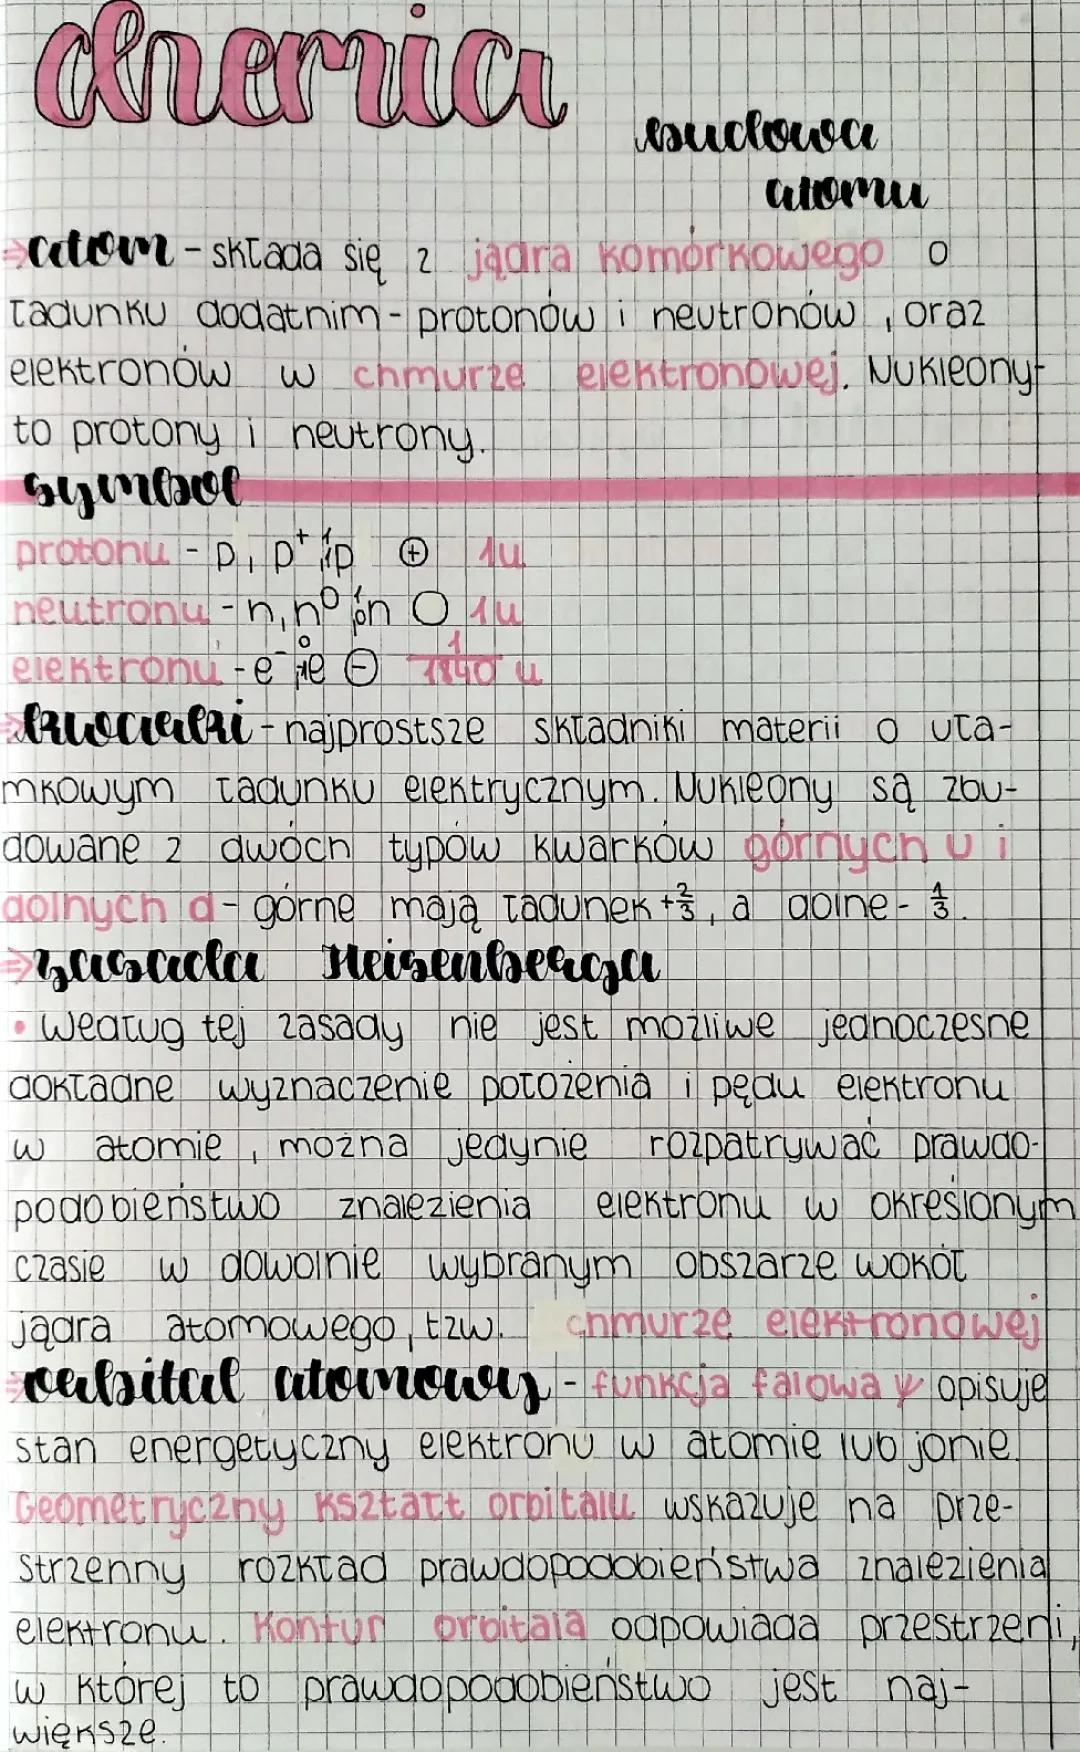 chemia
budowa
atomu
⇒atom - składa się z jądra komórkowego o
ładunku dodatnim - protonów i neutronów, oraz
elektronów w chmurze elektronowej. Nukleony-
to protony i neutrony.
symbol
protonu - p, p⁺, ¹₁p ⊕ 1u
neutronu - n, n⁰, ¹₀n ○ 1u
elektronu - e⁻, ⁰₋₁e ⊖ 1/1840 u
⇒kwarki - najprostsze składniki materii o uła-
mkowym ładunku elektrycznym. Nukleony są zbu-
dowane z dwóch typów kwarków górnych u i
dolnych d - górne mają ładunek +2/3, a dolne - 1/3.
⇒zasada Heisenberga
• według tej zasady nie jest możliwe jednoczesne
dokładne wyznaczenie położenia i pędu elektronu
w atomie, można jedynie rozpatrywać prawdo-
podobieństwo znalezienia elektronu w określonym
czasie w dowolnie wybranym obszarze wokół
jądra atomowego, tzw. chmurze elektronowej
⇒orbital atomowy - funkcja falowa ψ opisuje
stan energetyczny elektronu w atomie lub jonie.
Geometryczny kształt orbitalu wskazuje na prze-
strzenny rozkład prawdopodobieństwa znalezienia
elektronu. Kontur orbitala odpowiada przestrzeni,
w której to prawdopodobieństwo jest naj-
większe.